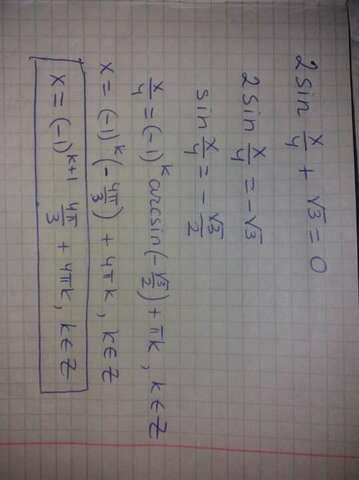 2sin x/4 + √3 = 0
2sin x/4 = -√3
sin x/4 = -√3/2
x/4 = (-1)^k arcsin(-√3/2) + πk, k∈Z
x = (-1)^k (-4π/3) + 4πk, k∈Z
x = (-1)^{k+1} 4π/3 + 4πk, k∈Z